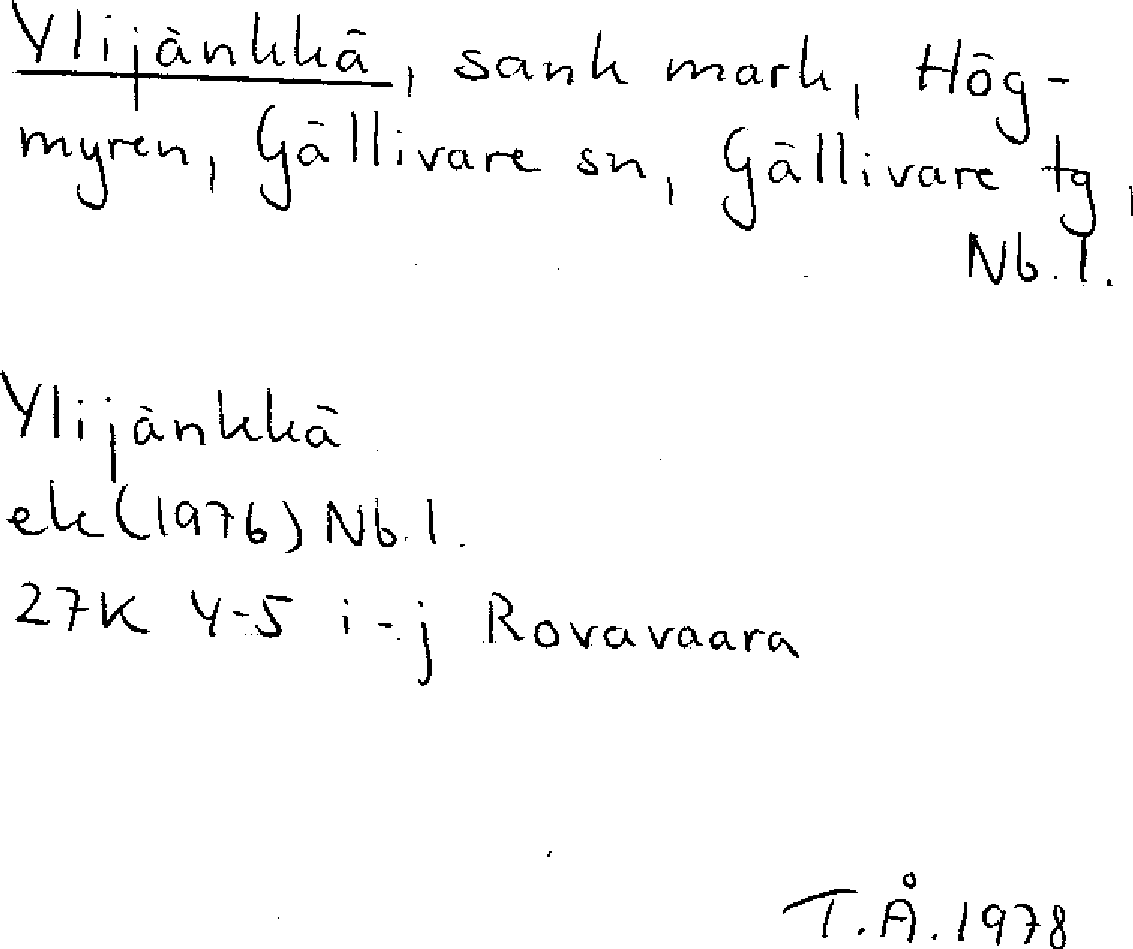 Ylijänkkä, sank mark, Hög-
myren, Gällivare sn, Gällivare tg,
Nb.l.
Ylijänkkä
ek (1976) Nb.l.
27K 4-5 i-j Rovavaara
T.Å. 1978